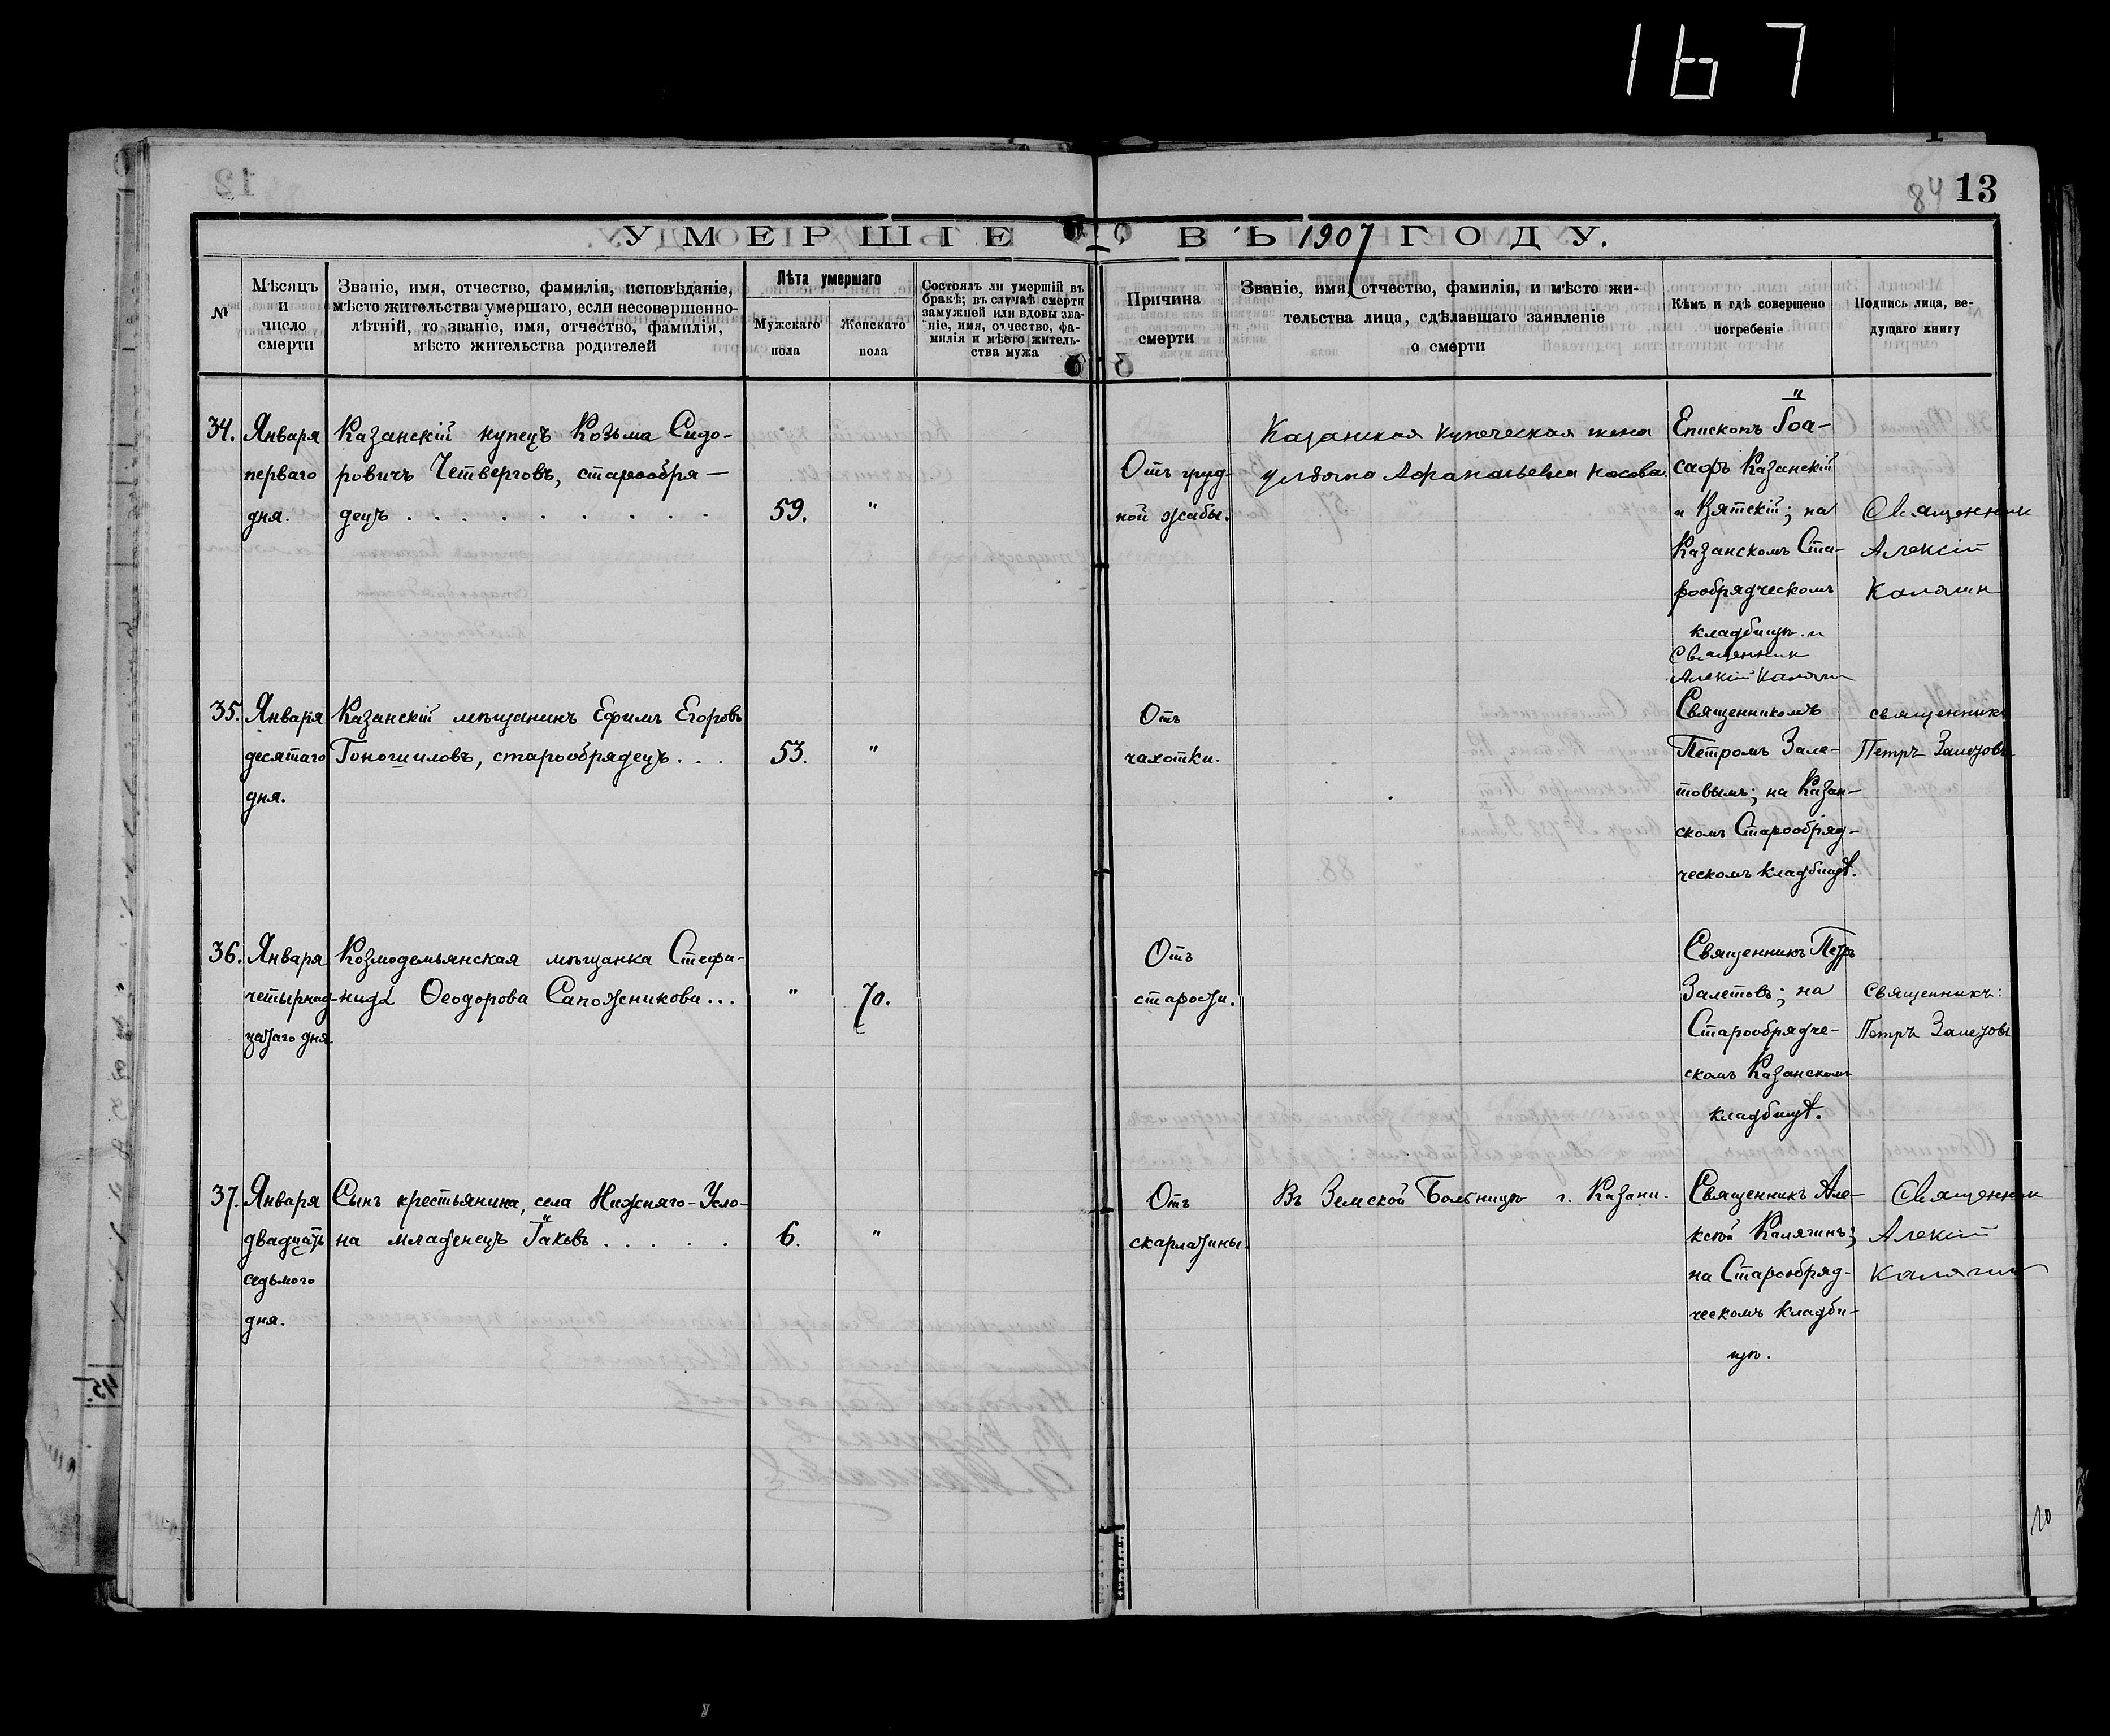 167
84 13
УМЕРШІЕ ВЪ 1907 ГОДУ.
№
Мѣсяцъ
и
число
смерти
Званіе, имя, отчество, фамилія, исповѣданіе,
мѣсто жительства умершаго, если несовершенно-
лѣтній, то званіе, имя, отчество, фамилія,
мѣсто жительства родителей
Лѣта умершаго
Мужскаго
пола
Женскаго
пола
Состоялъ ли умершій въ
бракѣ; въ случаѣ смерти
замужней или вдовы зва-
ніе, имя, отчество, фа-
милія и мѣсто житель-
ства мужа
Причина
смерти
Званіе, имя, отчество, фамилія, и мѣсто жи-
тельства лица, сдѣлавшаго заявленіе
о смерти
Кѣмъ и гдѣ совершено
погребеніе
Подпись лица, ве-
дущаго книгу
34.
Января
перваго
дня.
Казанскій купецъ Козьма Сидо-
ровичъ Четверговъ, старообря-
децъ . . . . . . . .
59.
"
Отъ груд-
ной жабы.
Казанская купеческая жена
Афанасьевна Носова.
Епископъ Іоа-
сафъ Казанскій
и Вятскій; на
Казанскомъ Ста-
рообрядческомъ
кладбищѣ. и
Священник
Алексій Калягин
Священник
Алексій
Калягин
35.
Января
десятаго
дня.
Казанскій мѣщанинъ Ефимъ Егоровъ
Гоногшиловъ, старообрядецъ . . .
53.
"
Отъ
чахотки.
Священникомъ
Петромъ Зале-
товымъ; на Казан-
скомъ Старообряд-
ческомъ кладбищѣ.
священникъ
Петръ Залетовъ
36.
Января
четырнад-
цатаго дня.
Козмодемьянская мѣщанка Стефа-
нида Ѳеодорова Сапожникова...
"
70.
Отъ
старости.
Священникъ Петръ
Залетовъ; на
Старообрядче-
скомъ Казанскомъ
кладбищѣ.
Священникъ:
Петръ Залетовъ
37.
Января
двадцать
седьмого
дня.
Сынъ крестьянина, села Нижняго-Усло-
на младенецъ Іаковъ . . . . .
6.
"
Отъ
скарлатины.
Въ Земской Больницѣ г. Казани.
Священникъ Але-
ксѣй Калягинъ;
на Старообряд-
ческомъ кладби-
щѣ.
Священник
Алексій
Калягин
20
45.